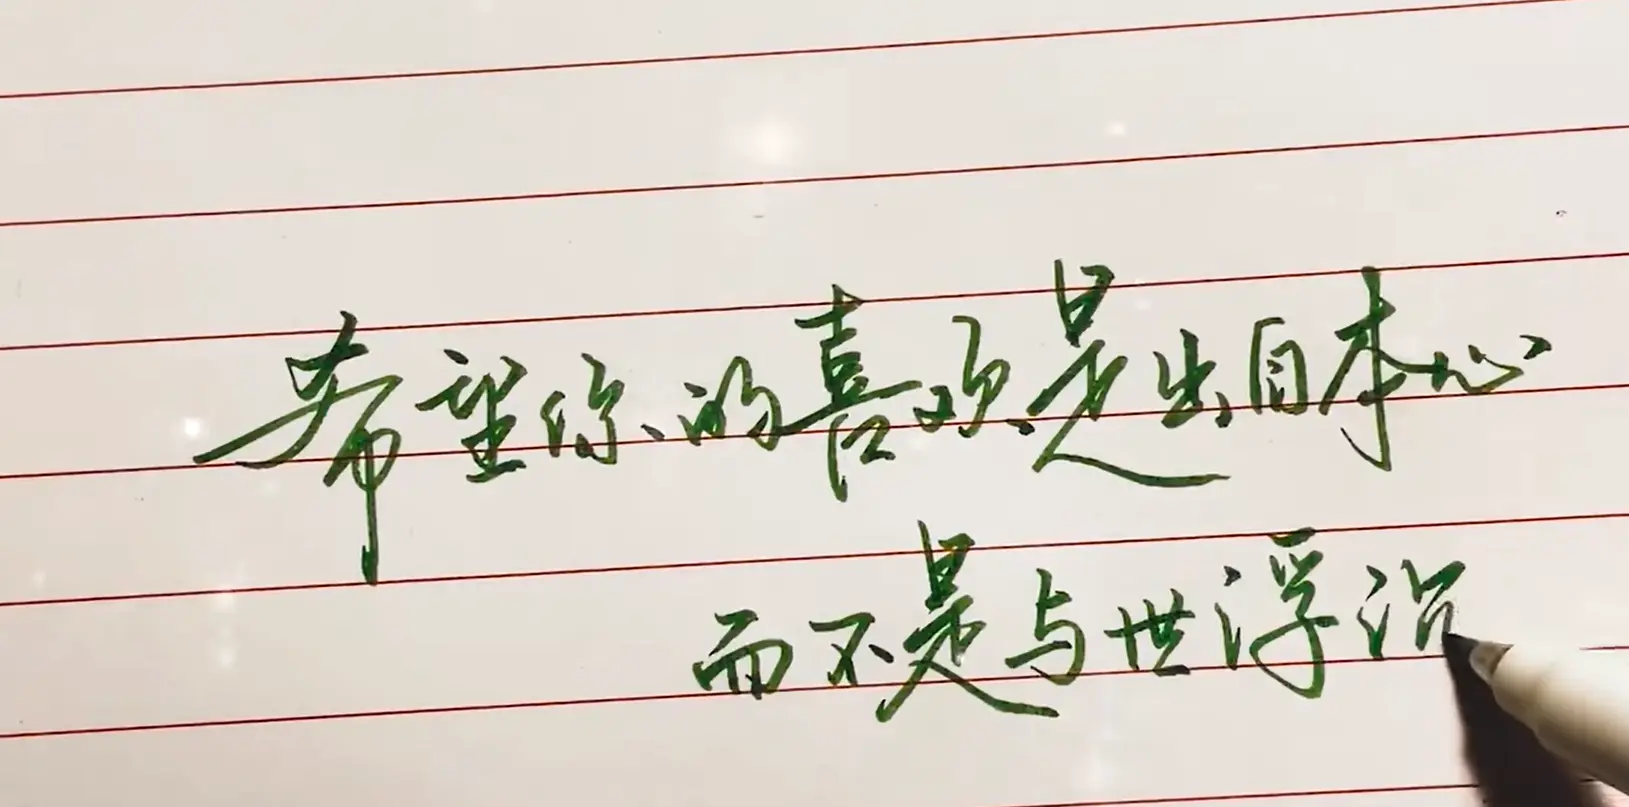 希望你的喜欢是出自本心
而不是与世浮沉